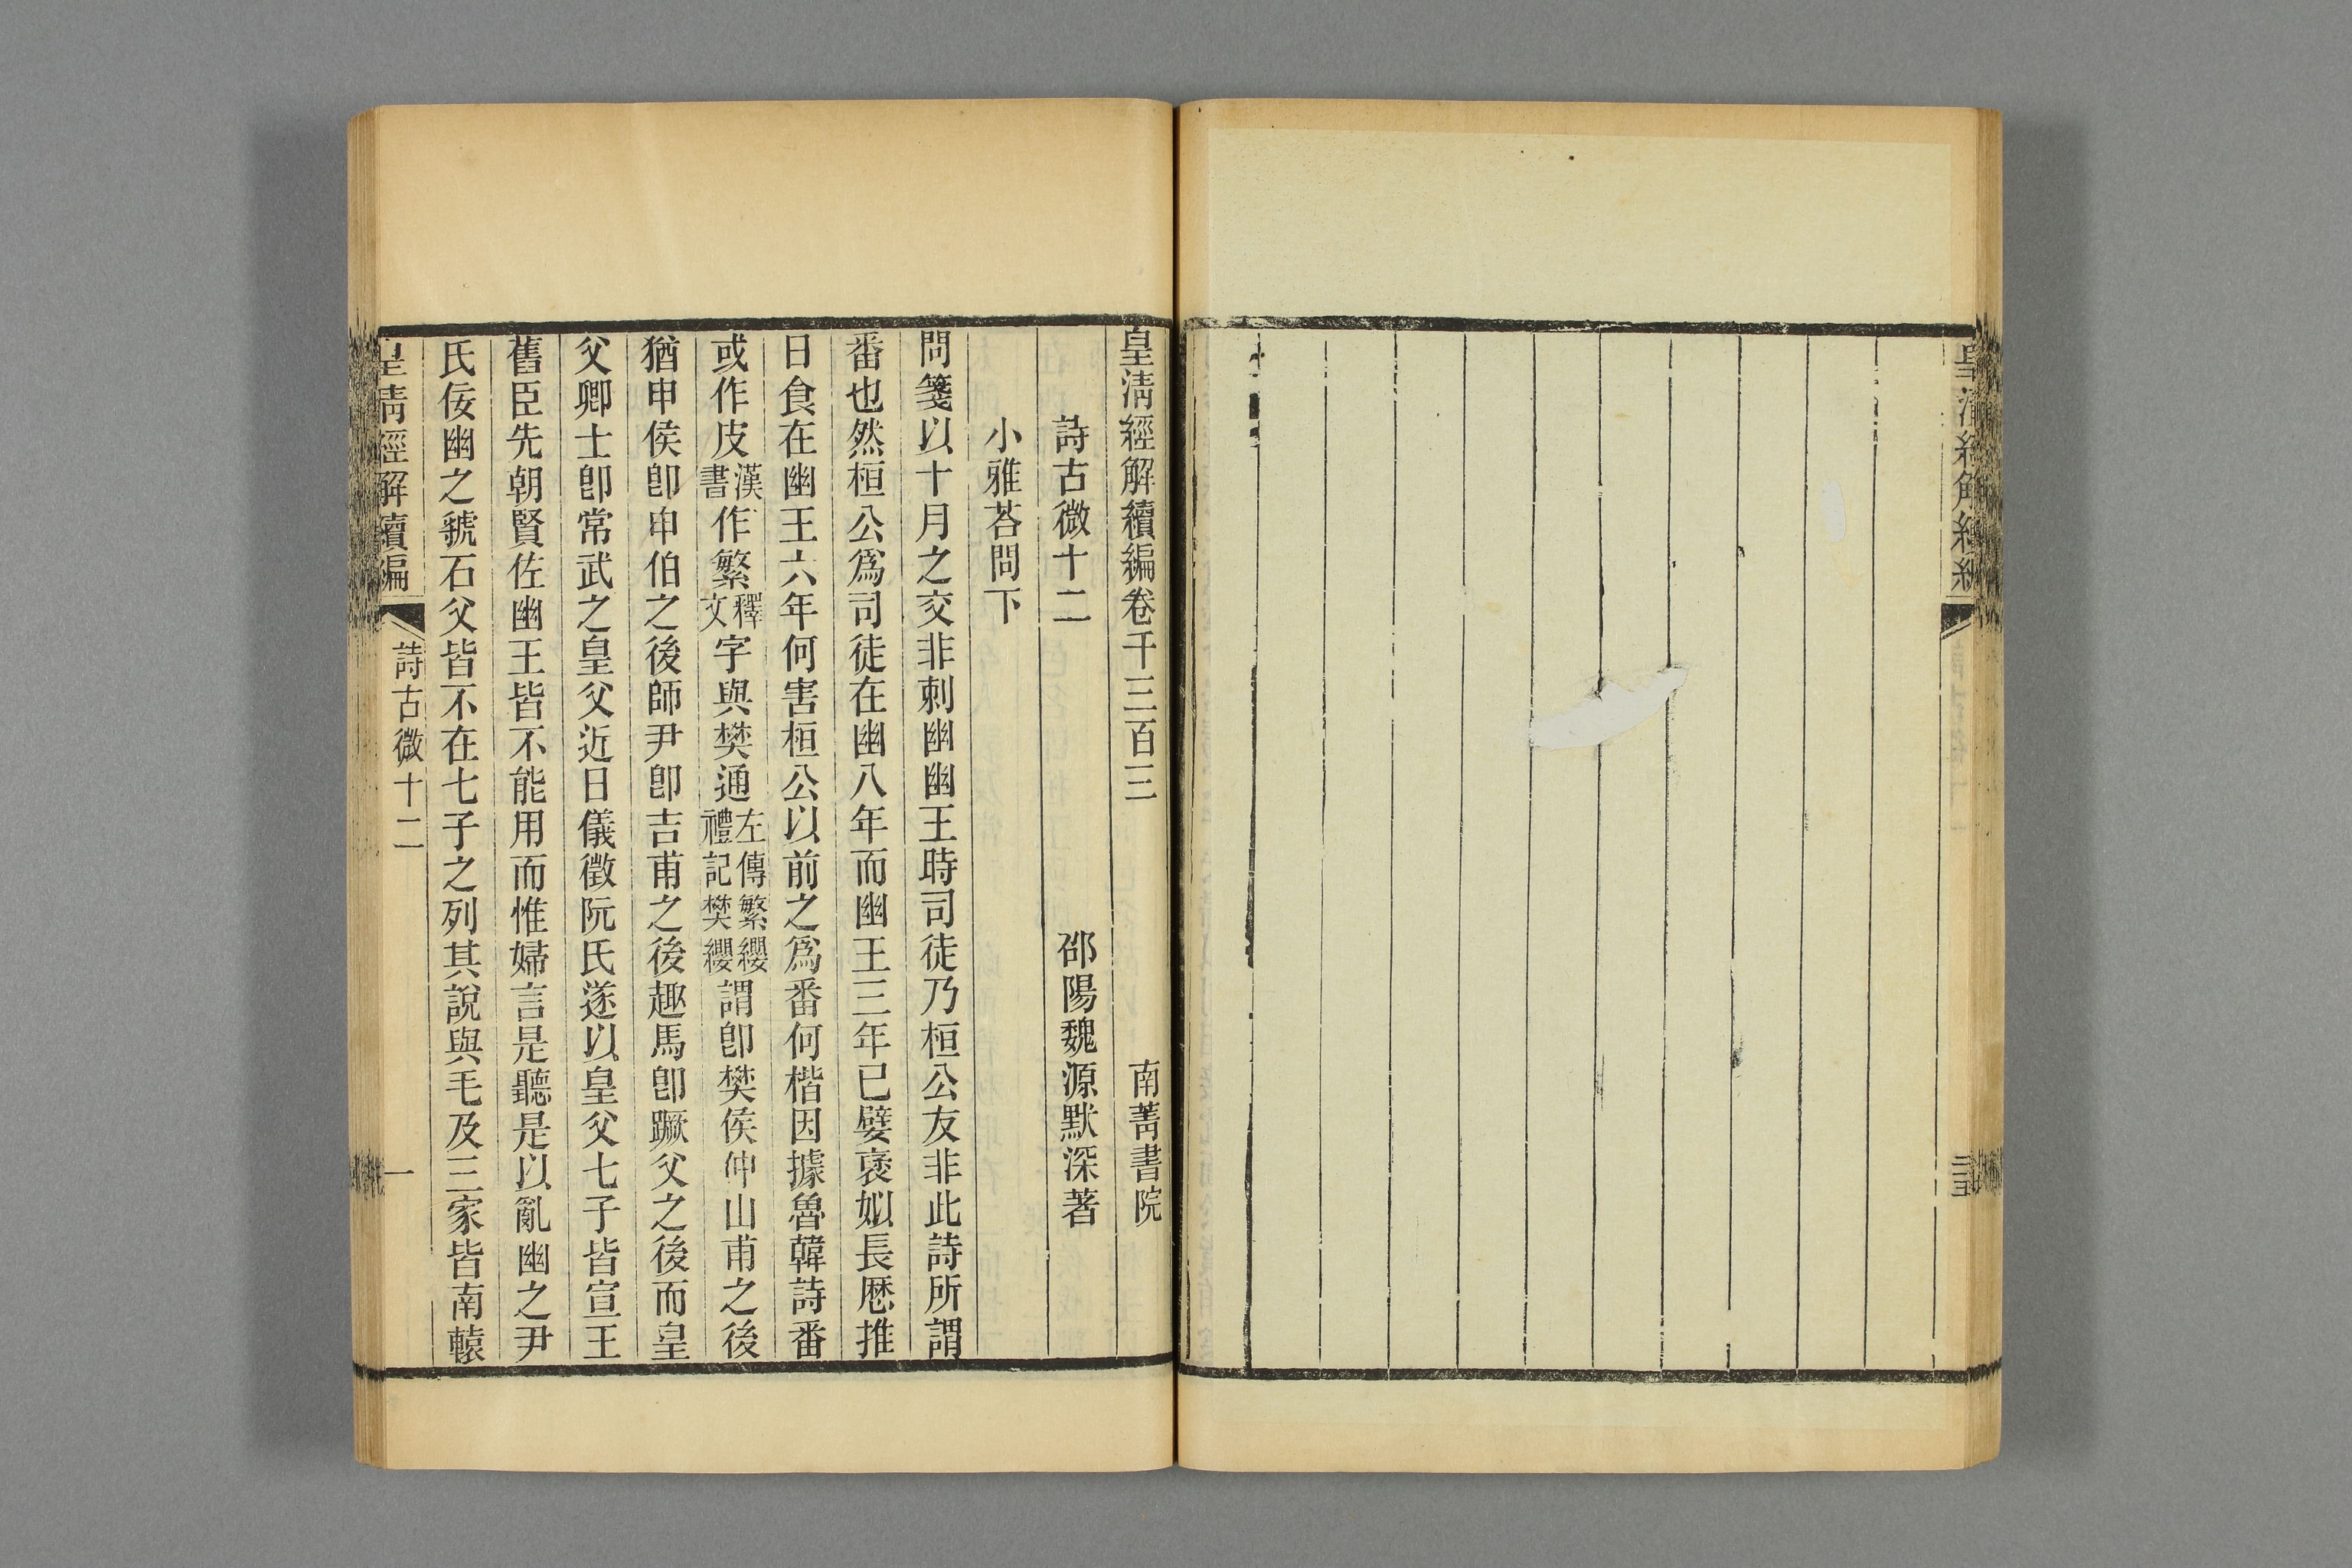 皇清經解續編
皇清經解續編卷千三百三
南菁書院
詩古微十二
邵陽魏源默深著
小雅荅問下
問箋以十月之交非刺幽幽王時司徒乃桓公友非此詩所謂
番也然桓公爲司徒在幽八年而幽王三年已嬖褒姒長厯推
日食在幽王六年何害桓公以前之爲番何楷因據魯韓詩番
或作皮漢書作繁釋文字與樊通左傳繁纓禮記樊纓謂卽樊侯仲山甫之後
猶申侯卽申伯之後師尹卽吉甫之後趣馬卽蹶父之後而皇
父卿士卽常武之皇父近日儀徵阮氏遂以皇父七子皆宣王
舊臣先朝賢佐幽王皆不能用而惟婦言是聽是以亂幽之尹
氏佞幽之虢石父皆不在七子之列其說與毛及三家皆南轅
皇清經解續編
詩古微十二
一